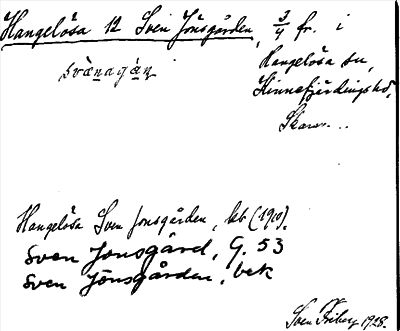 Hangelösa 12 Sven Jonsgården, 3/4 fr. i
Hangelösa sn,
svänagán
Kinnefjärdingshd,
Skarab...
Hangelösa Sven Jonsgården, kb (1910).
Sven Jonsgård, G. 53
Sven Jönsgården, bek
Sven Friberg 1928.